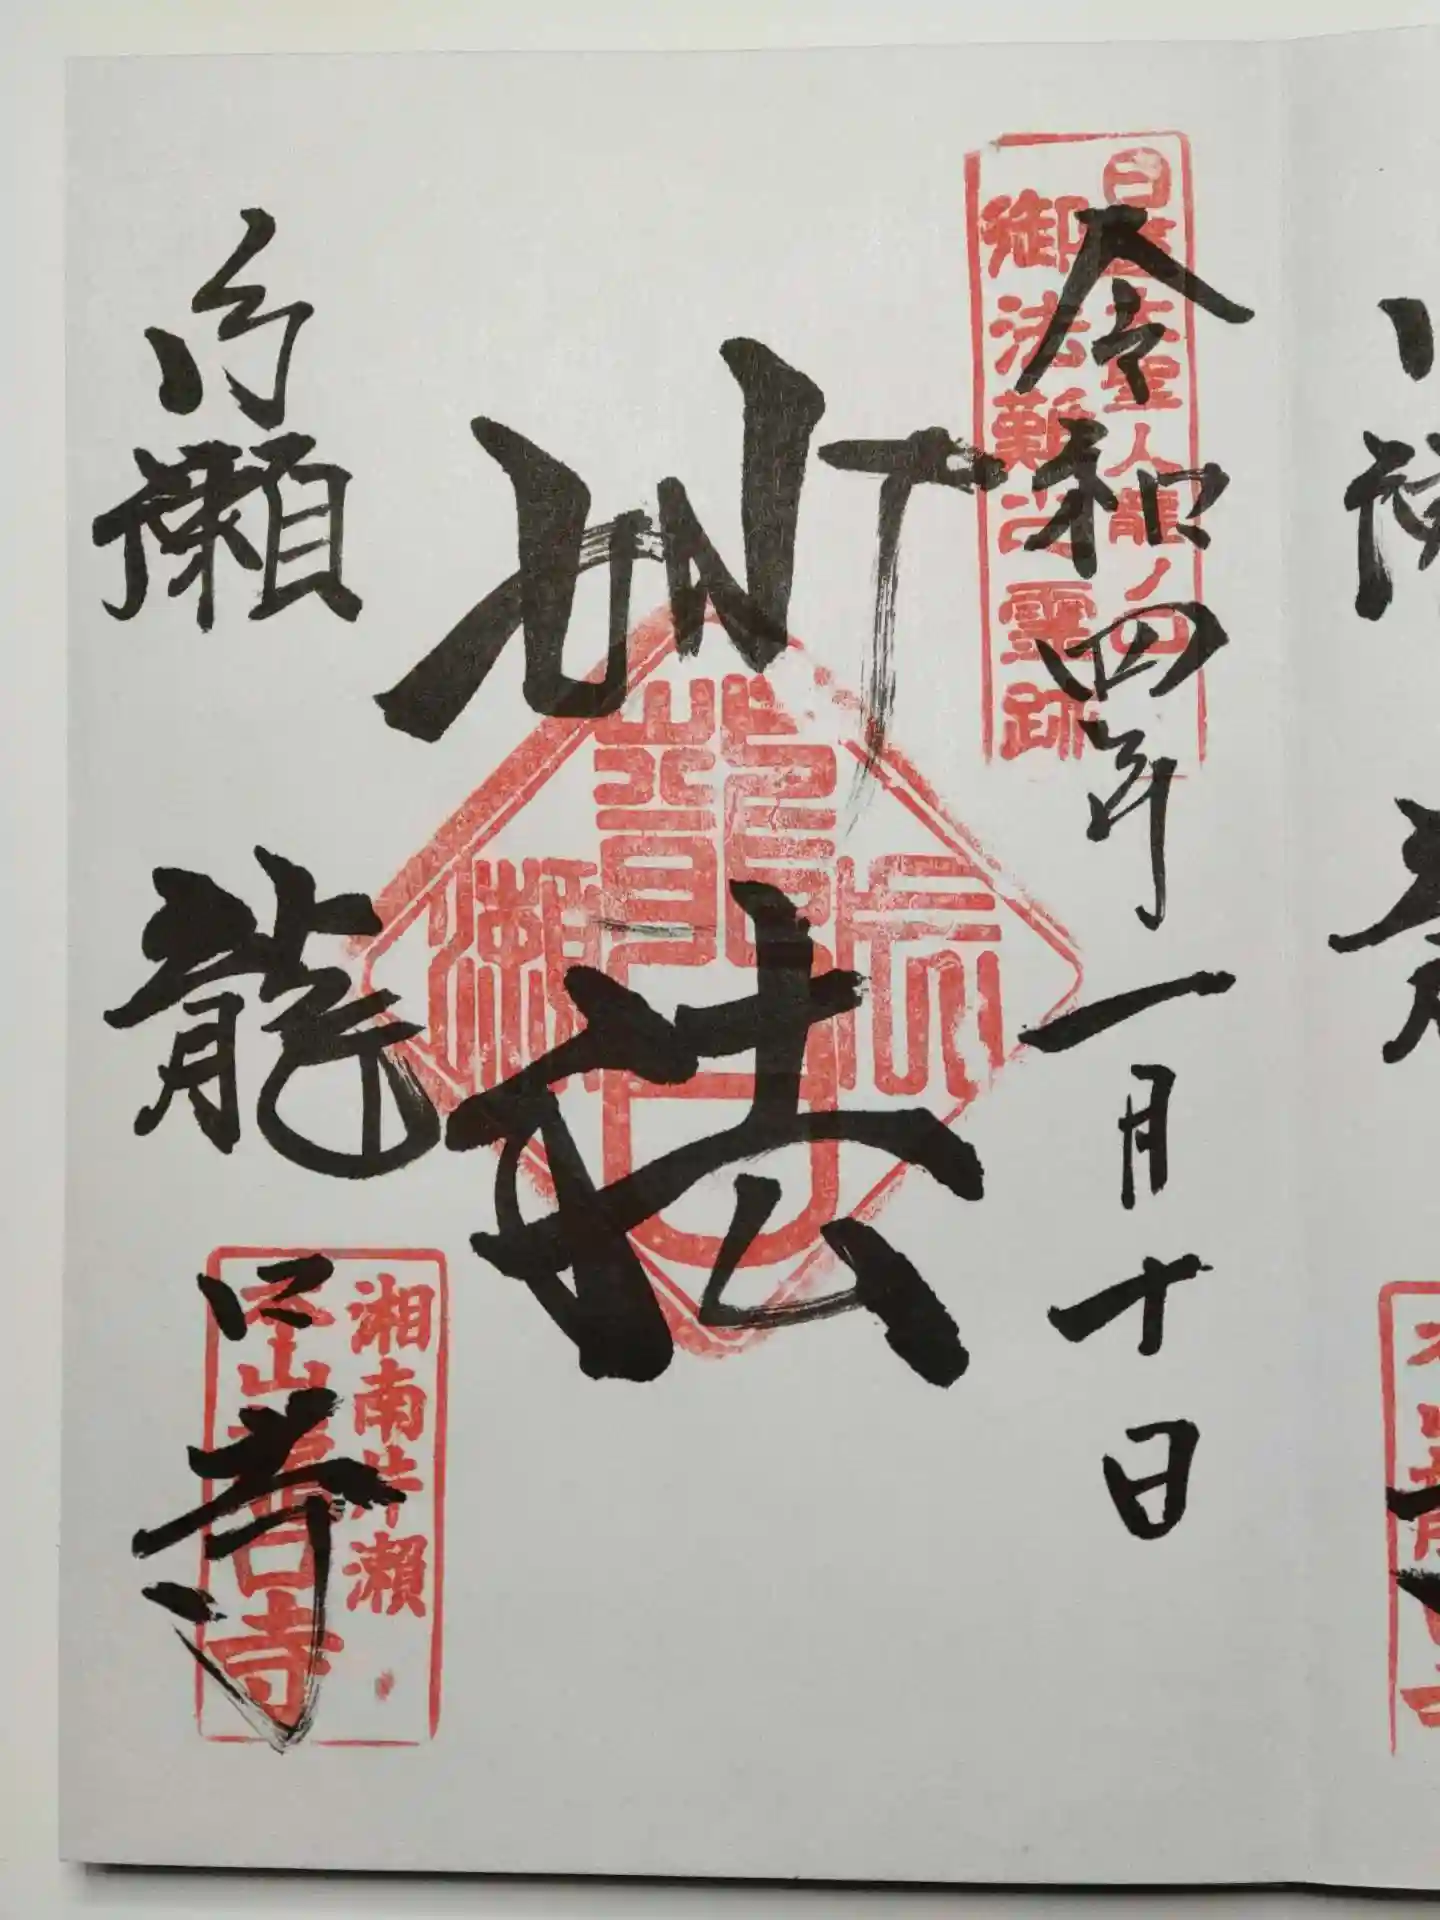 令和四年一月十日
日蓮大聖人龍ノ口
御法難之霊跡
妙法
龍口
片瀬
片瀬
龍口寺
湘南片瀬
本山龍口寺